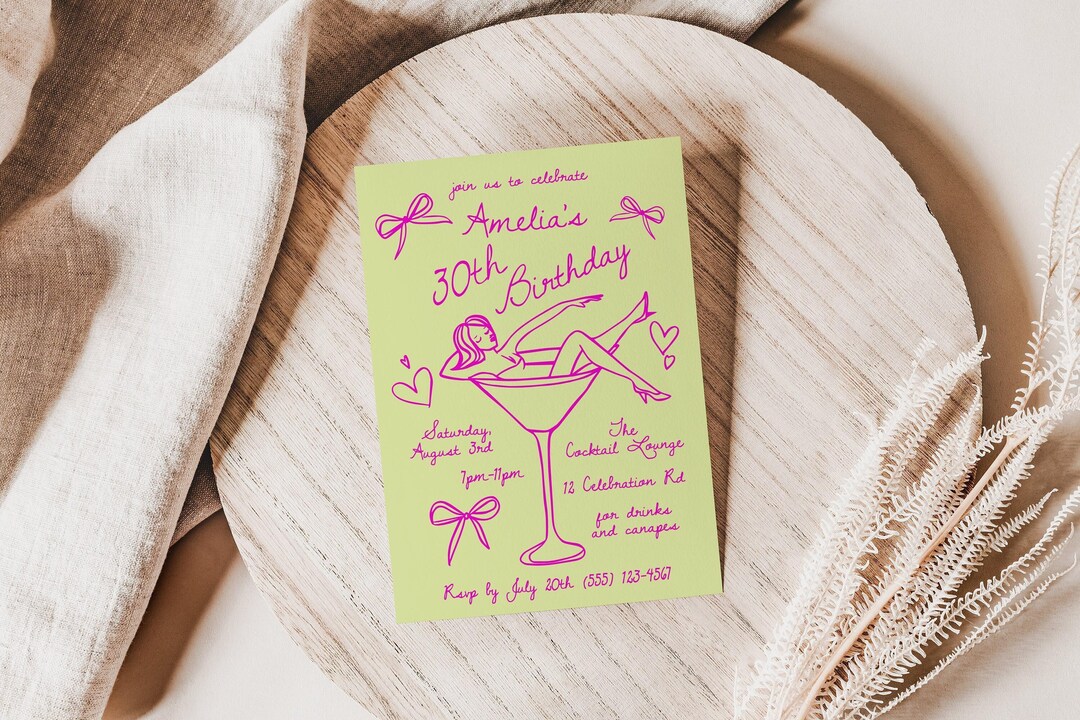 join us to celebrate
Amelia's
30th Birthday
Saturday,
August 3rd
7pm-11pm
The
Cocktail Lounge
12 Celebration Rd
for drinks
and canapes
Rsvp by July 20th (555) 123-4567